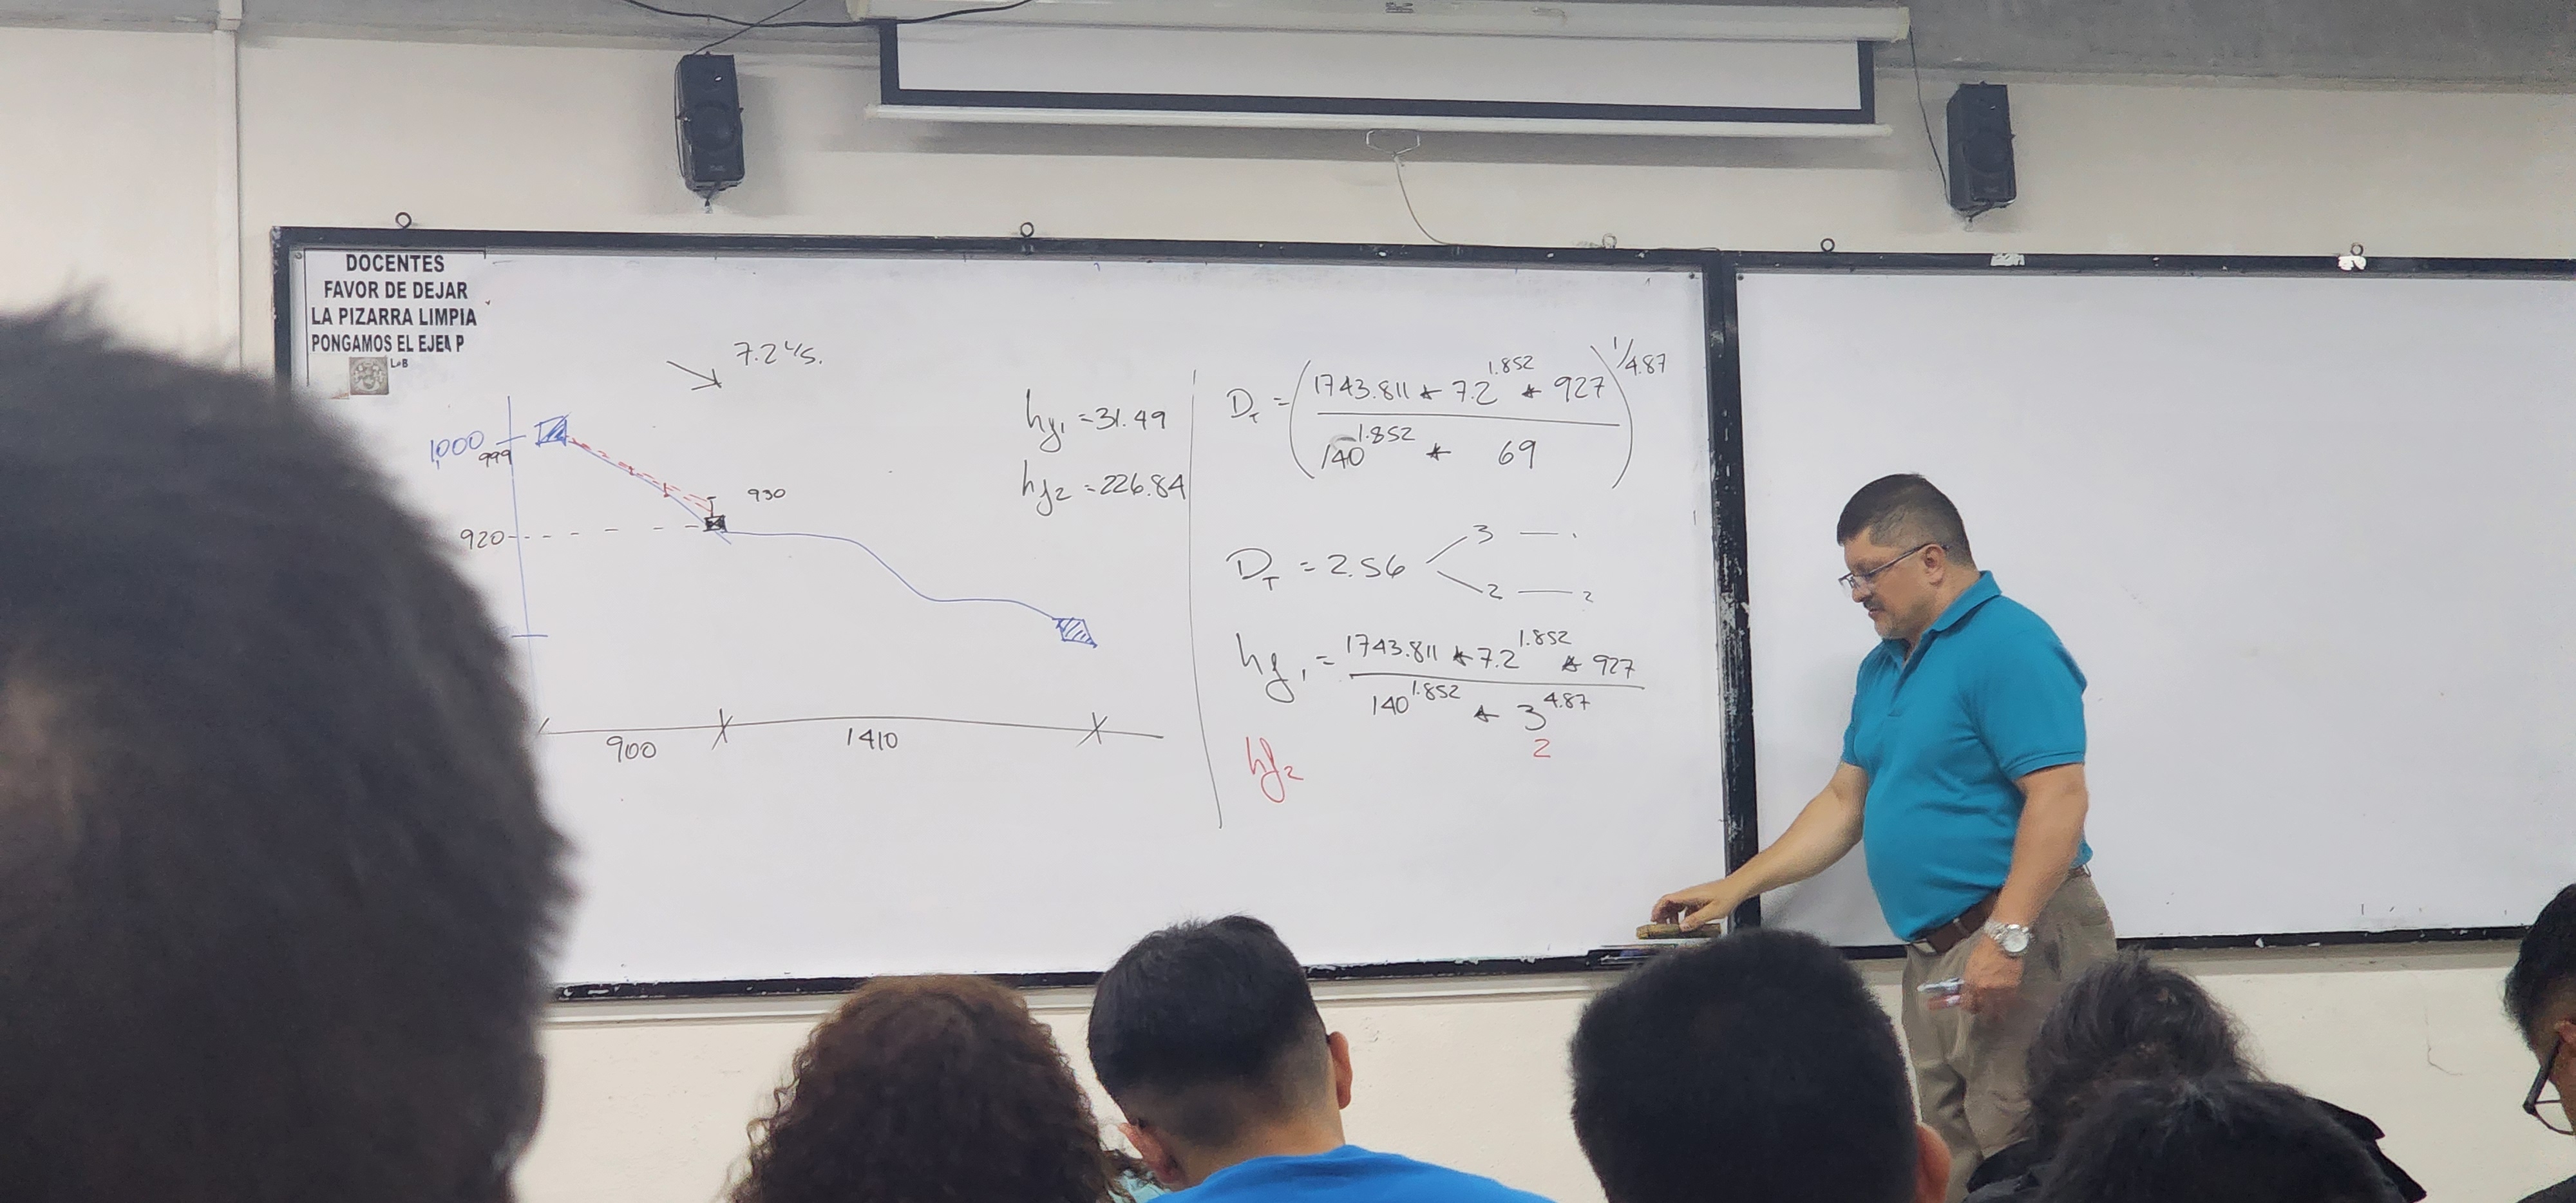 DOCENTES
FAVOR DE DEJAR
LA PIZARRA LIMPIA
PONGAMOS EL EJE P
LoB
7.2 L/s.
1,000
999
930
920
900
1410
hf1 = 31.49
hf2 = 226.84
DT = (1743.811 * 7.2^1.852 * 927 / 140^1.852 * 69)^1/4.87
DT = 2.56
3 — .
2 — 2
hf1 = 1743.811 * 7.2^1.852 * 927 / 140^1.852 * 3^4.87
2
hf2